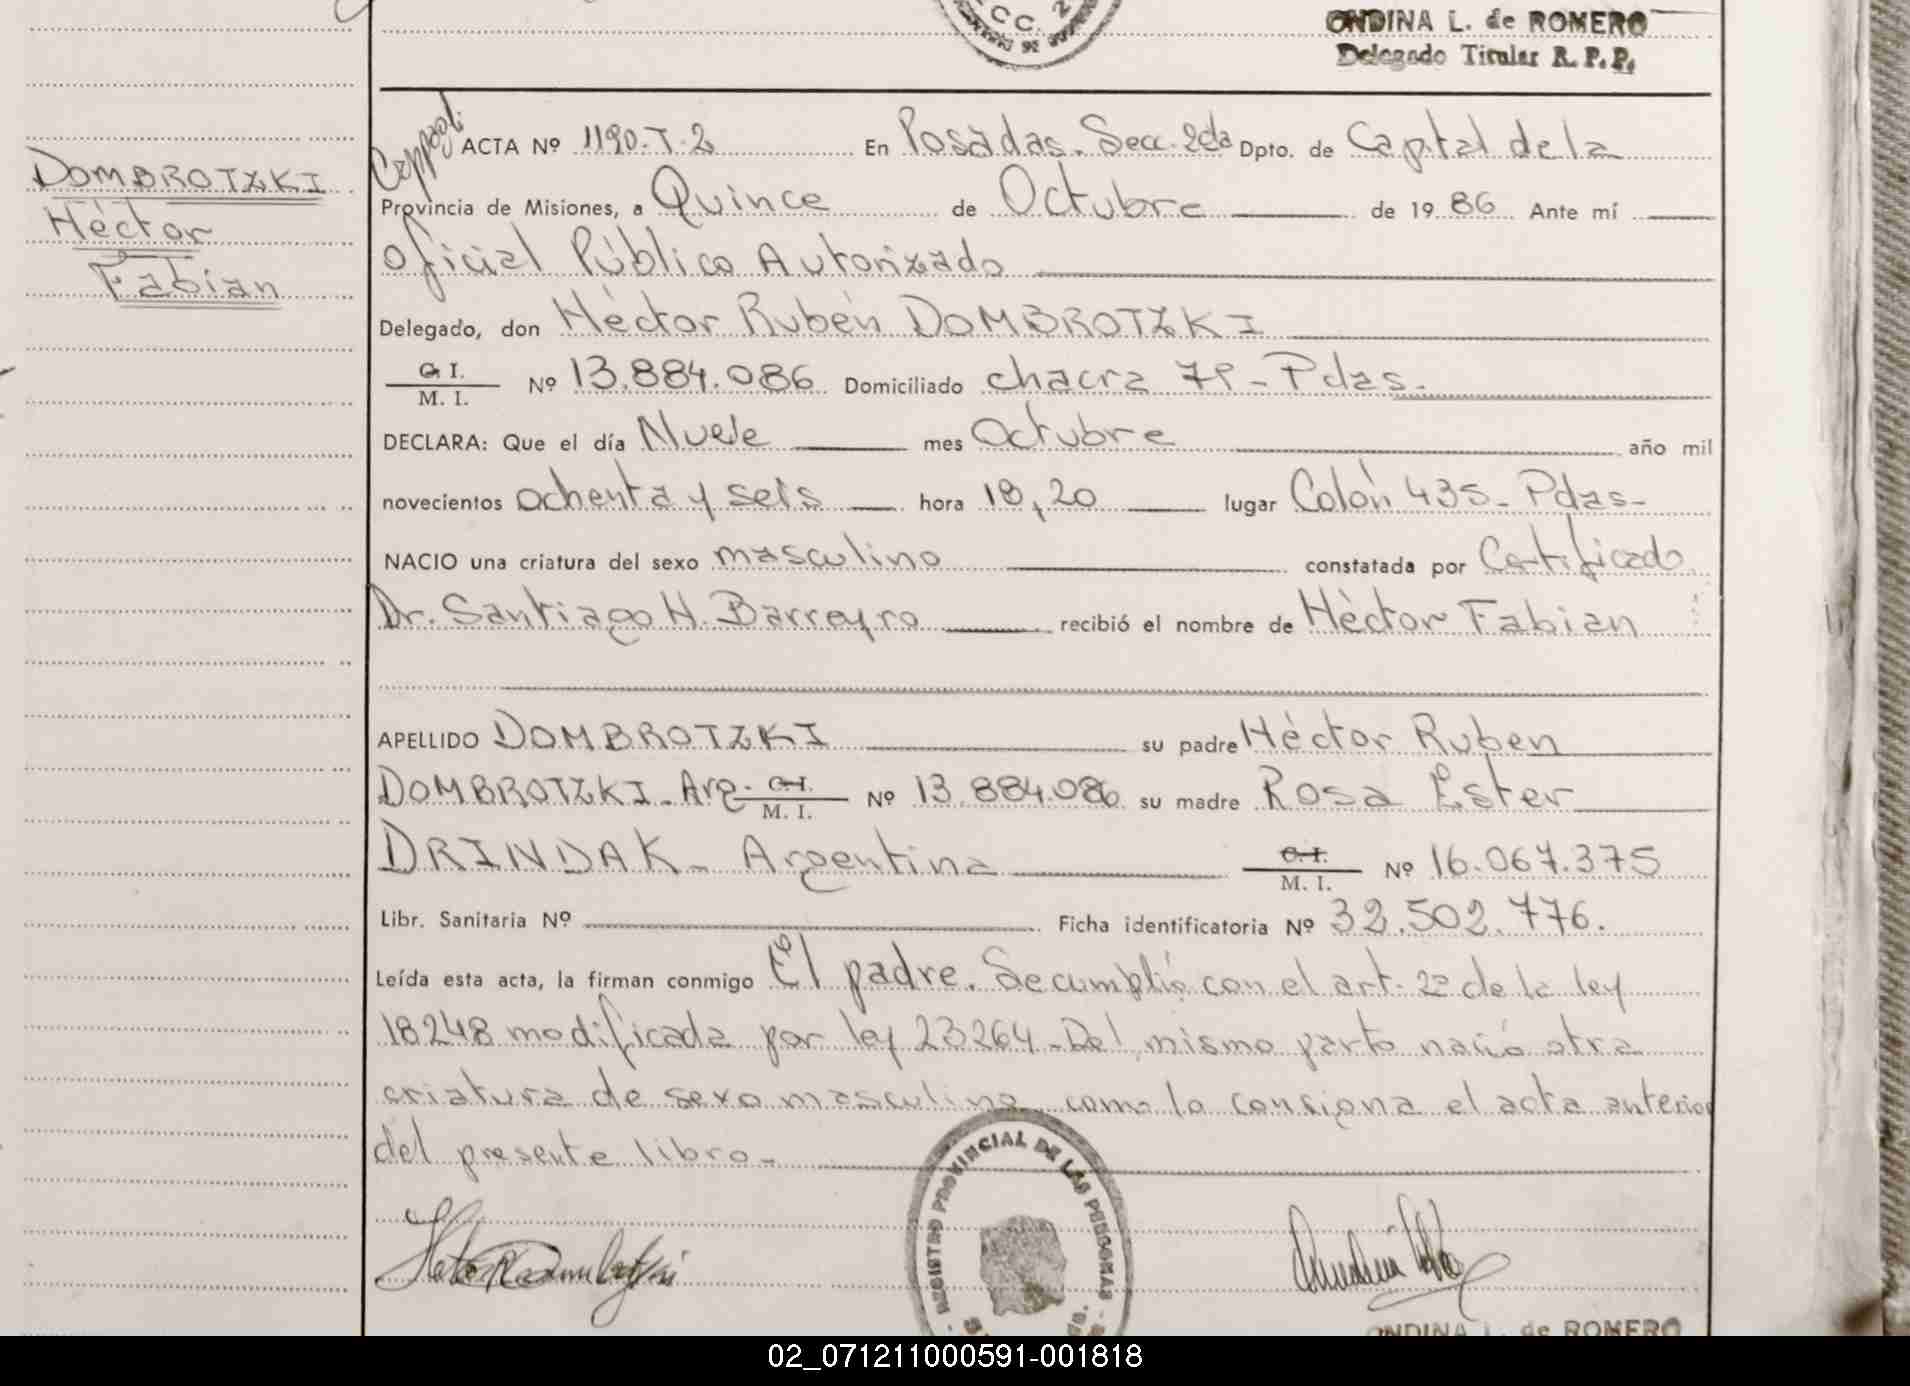 ONDINA L. de ROMERO
Delegado Titular R. P. P.
DOMBROTZKI
Héctor
Fabian
ACTA Nº 1190.T.2 En Posadas. Secc. 2da Dpto. de Capital de la
Provincia de Misiones, a Quince de Octubre de 1986 Ante mí
Oficial Público Autorizado
Delegado, don Héctor Rubén DOMBROTZKI
C. I.
M. I. Nº 13.884.086 Domiciliado chacra - Pdas.
DECLARA: Que el día Nueve mes Octubre año mil
novecientos ochenta y seis hora 18,20 lugar Colón 435- Pdas-
NACIO una criatura del sexo masculino constatada por Certificado
Dr. Santiago H. Barreyro recibió el nombre de Héctor Fabian
APELLIDO DOMBROTZKI su padre Héctor Ruben
DOMBROTZKI - Arg. C. I.
M. I. Nº 13.884.086 su madre Rosa Ester
DRINDAK - Argentina C. I.
M. I. Nº 16.067.375
Libr. Sanitaria Nº Ficha identificatoria Nº 32.502.776.
Leída esta acta, la firman conmigo El padre. Se cumplió con el art. 2º de la ley
18248 modificada por ley 23264 - Del mismo parto nació otra
criatura de sexo masculino como lo consigna el acta anterior
del presente libro -
REGISTRO PROVINCIAL DE LAS PERSONAS
ONDINA L. de ROMERO
02_071211000591-001818